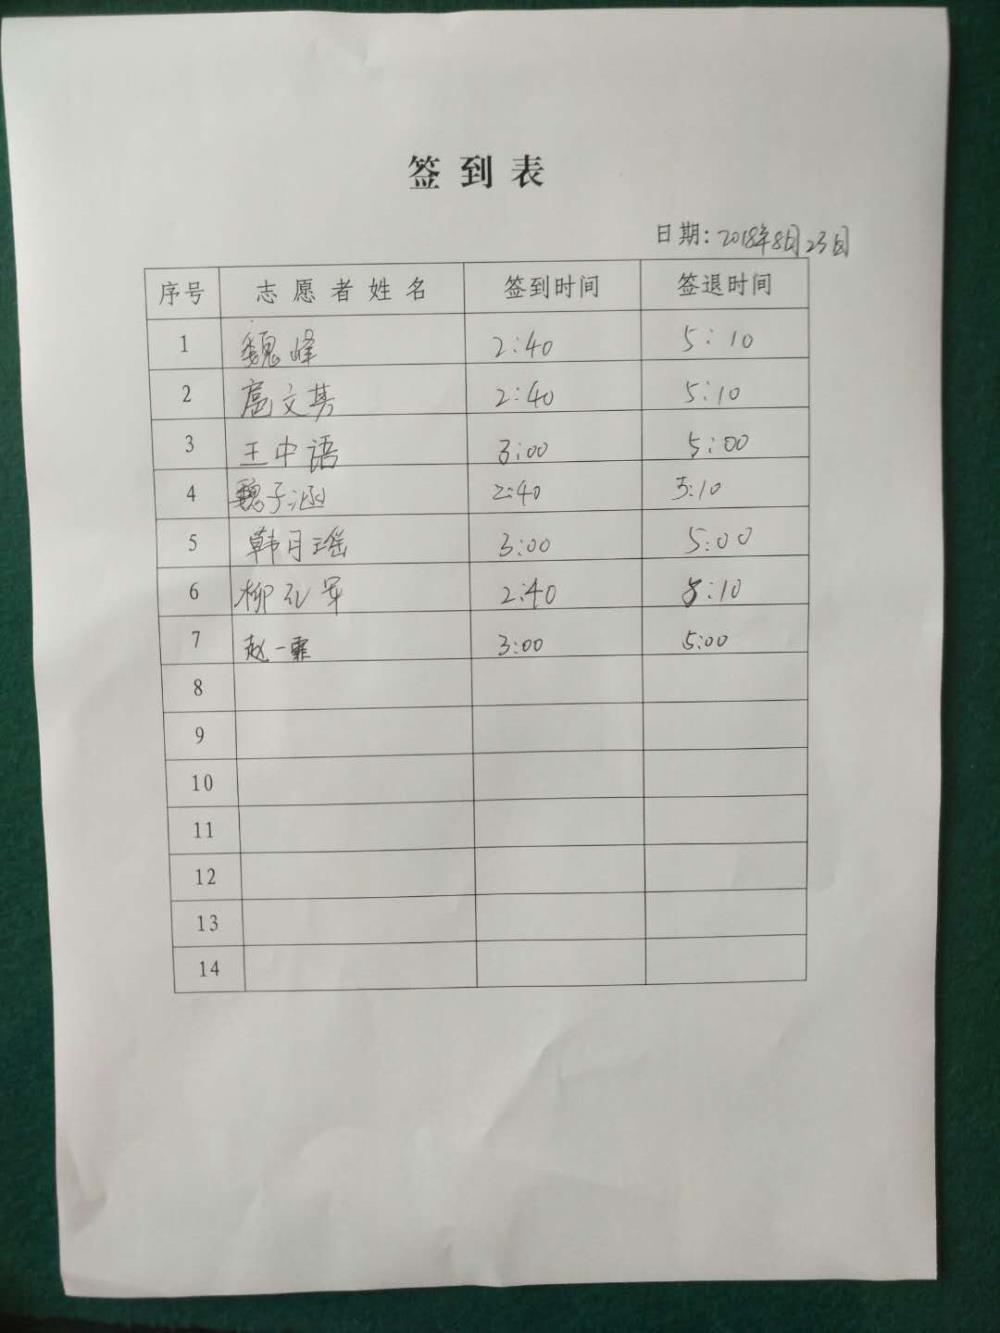 签到表
日期：2018年8月23日
序号 志愿者姓名 签到时间 签退时间
1 魏峰 2:40 5:10
2 扈文其 2:40 5:10
3 王中语 3:00 5:00
4 魏子涵 2:40 5:10
5 韩月瑶 3:00 5:00
6 柳 2:40 5:10
7 赵一霏 3:00 5:00
8
9
10
11
12
13
14